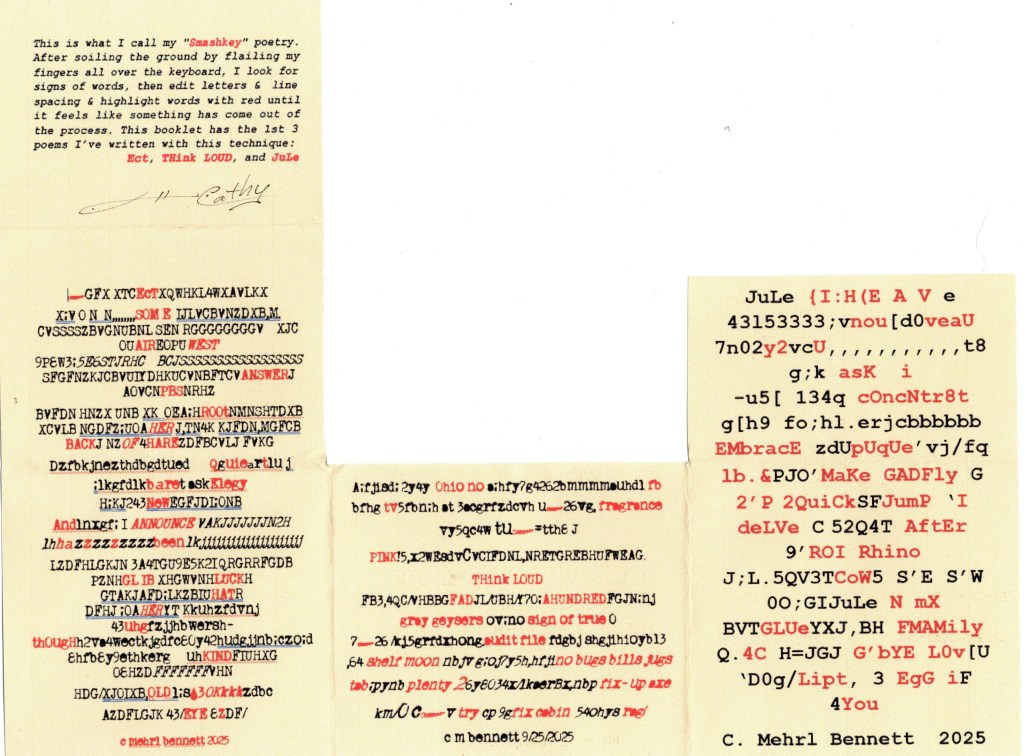 This is what I call my "Smashkey" poetry.
After soiling the ground by flailing my
fingers all over the keyboard, I look for
signs of words, then edit letters & line
spacing & highlight words with red until
it feels like something has come out of
the process. This booklet has the 1st 3
poems I've written with this technique:
Ect, THink LOUD, and JuLe
Cathy
GFX XTCEcTXQWHKL4WXAVLKX
X;V O N N,,,,,,,,SOM E IJLVCBVNZDXB,M,
CVSSSSZBVGNUBNL SEN RGGGGGGGGV XJC
OUAIREOPUWEST
9P&W3;5E&STJRHC BCJSSSSSSSSSSSSSSSSSSS
SFGFNZKJCBVUIYDHKUCVNBFTCVANSWERJ
AOVCNPBSNRHZ
BVFDN HNZX UNB XK OEA;HROOtNMNSHTDXB
XCVLB NGDFZ;UOAHER J,TN4K KJFDN,MGFCB
BACKJ NZOF4HAREZDFBCVLJ FVKG
Dzfbkjnezthdbgdtued Qguieartlu j
;lkgfdlkbaretaskElegy
H;KJ243NeWEGFJDI;ONB
Andlnxgf; I ANNOUNCE VAKJJJJJJJN2H
lhhazzzzzzzzzbeenlkjjjjjjjjjjjjjjjjjjjjjj
LZDFHLGKJN 3A4TGU9E5K2IQRGRRFGDB
PZNHGLIBXHGWVNHLUCKH
GTAKJAFD;LKZBIUHATR
DFHJ;OAHERYT Kkuhzfdvnj
43uhgfzjjhbwersh-
thOUgHh2va4wectkjgdfc80y42hudgjjnb;czo;d
&hfb&y9ethkerg uhKINDFIUHXG
O&HZDFFFFFFFVHN
HDG/XJOIXB,OLD1;s&30Kkkkzdbc
AZDFLGJK 43/EYE&ZDF/
c mehrl bennett 2025
A;fjisd;2y4y Ohio no a;hfy7g4262bmmmmauhdl fb
bfhg tv5fbn;h at 3acgrfzdcvh u 26vg, fragrance
vy5qc4w tu =tth& J
PINK!5,x2WEsdvCvCIFDNL,NRETGREBHUFWEAG.
THink LOUD
FB3,4QC/VHBBGFADJL/UBH/?7O;AHUNDREDFGJN;nj
gray geysers ov;no sign of true O
7 26/kj5grfdxhong,audit file fdgbj shgjihiOyb13
,64 shelf moon nbjvg;oj?y5h,hfjino bugs bills,jugs
tab;pynb plenty .26y8034x/lkaerBx,nbp fix-up axe
km/O C v try cp 9gfix cabin 54Ohys rag/
c m bennett 9/25/2025
JuLe {I:H(E A V e
43153333;vnou[d0veaU
7n02y2vcU,,,,,,,,,,,t8
g;k asK i
-u5[ 134q cOncNtr8t
g[h9 fo;hl.erjcbbbbbb
EMbracE zdUpUqUe'vj/fq
lb.&PJO'MaKe GADFly G
2'P 2QuiCkSFJumP 'I
deLVe C 52Q4T AftEr
9'ROI Rhino
J;L.5QV3TCoW5 S'E S'W
0O;GIJuLe N mX
BVTGLUeYXJ,BH FMAMily
Q.4C H=JGJ G'bYE L0v[U
'D0g/Lipt, 3 EgG iF
4You
C. Mehrl Bennett 2025